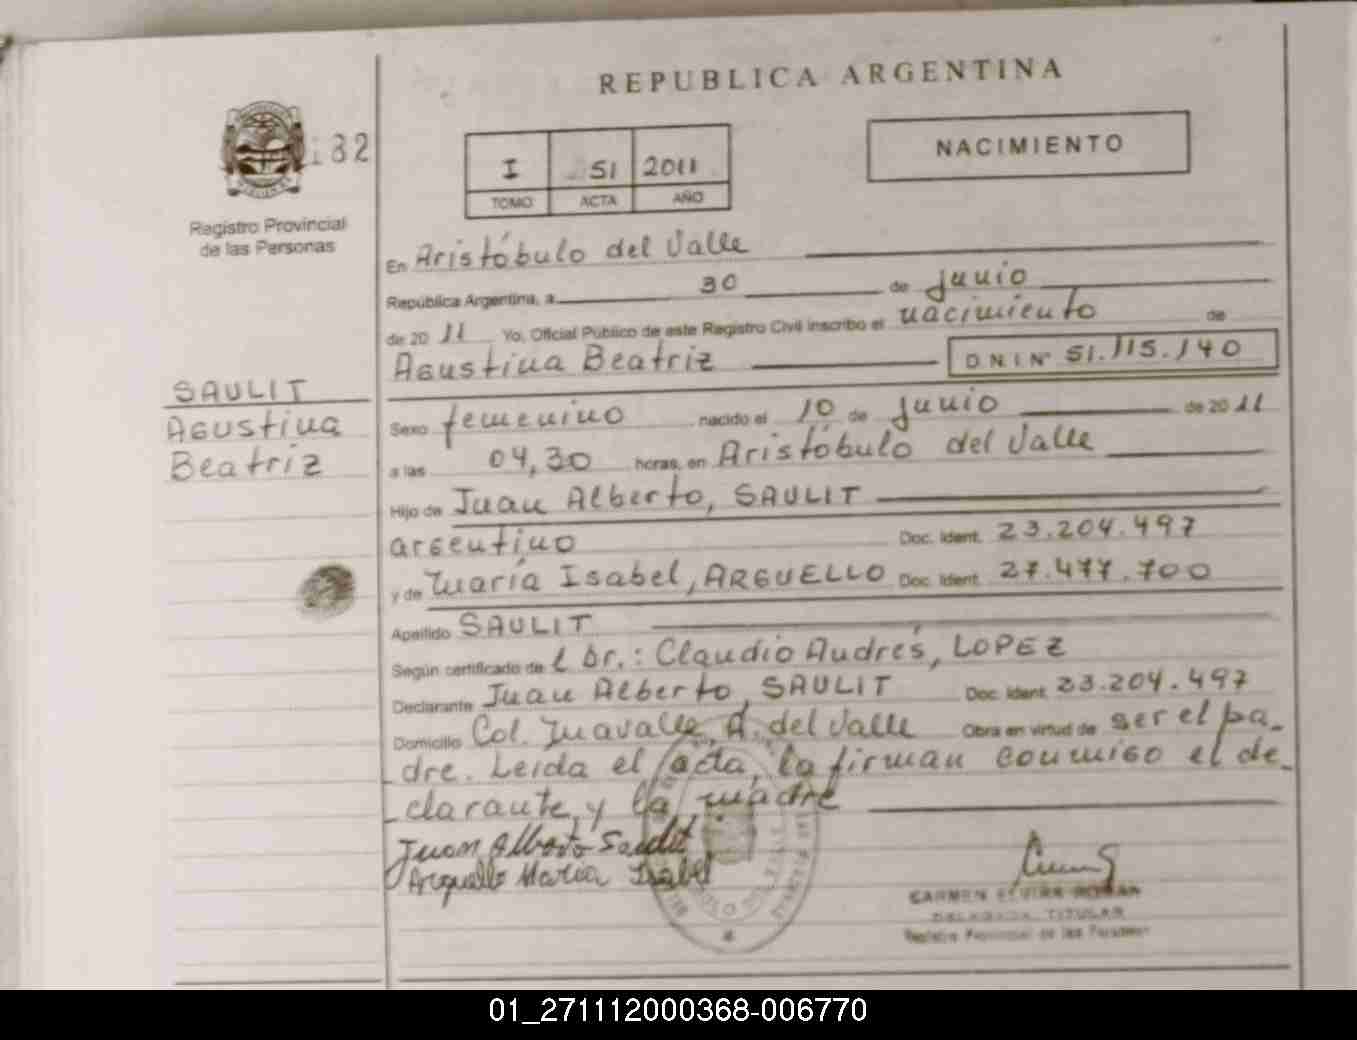 REPUBLICA ARGENTINA
NACIMIENTO
I 51 2011
TOMO ACTA AÑO
Registro Provincial
de las Personas
En Aristóbulo del Valle
República Argentina, a 30 de junio
de 2011 Yo, Oficial Público de este Registro Civil inscribo el nacimiento de
Agustina Beatriz D.N.I Nº 51.115.140
SAULIT
Agustina
Beatriz
Sexo femenino nacido el 10 de junio de 2011
a las 04,30 horas, en Aristóbulo del Valle
Hijo de Juan Alberto, SAULIT
argentino Doc. Ident. 23.204.497
y de María Isabel, ARGUELLO Doc. Ident. 27.477.700
Apellido SAULIT
Según certificado de l Dr.: Claudio Andrés, LOPEZ
Declarante Juan Alberto, SAULIT Doc. Ident. 23.204.497
Domicilio Col. A. del Valle Obra en virtud de ser el pa-
dre. Leída el acta, la firman conmigo el de-
clarante, y la madre
Juan Alberto Saulit
Arguello Maria Isabel
CARMEN ELVIRA ROMAN
DELEGADA TITULAR
Registro Provincial de las Personas
01_271112000368-006770